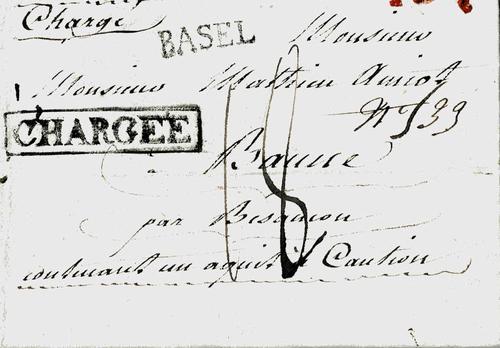 Chargé
BASEL
Monsieur
Monsieur Mathieu Amiot
CHARGÉE
N° 533
à Baume
18
par Besançon
contenant un aquit à Caution